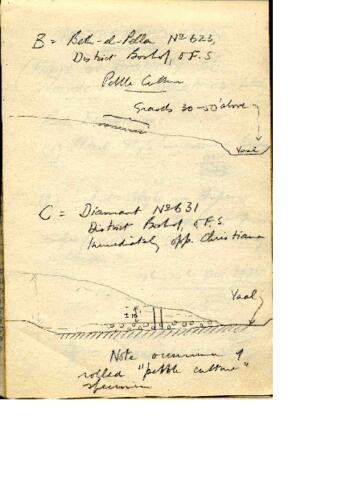 B = Beth-el-Pella No 623,
District Boshof, O.F.S
Pebble Culture
Gravels 30-50' above
Vaal
C = Diamant No 631
District Boshof, O.F.S.
Immediately opp. Christiana
Vaal
± 18'
Note occurrence of
rolled "pebble culture"
specimen